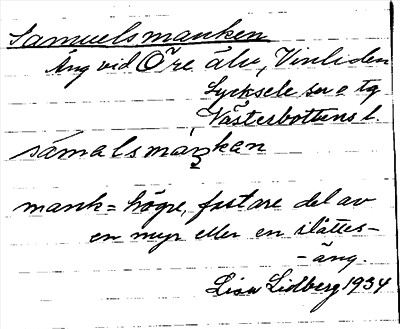 Samuelsmanken
Äng vid Öre älv, Vinliden
Lycksele sn o tg
Västerbottens l.
samalsmaŋkan
mank = högre, fastare del av
en myr eller en slåttes-
-äng.
Lisa Lidberg 1934